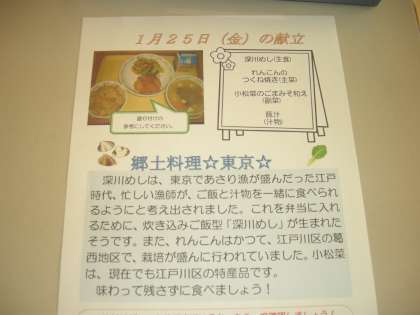 1月25日(金)の献立
深川めし(主食)
れんこんの
つくね焼き(主菜)
小松菜のごまみそ和え
(副菜)
豚汁
(汁物)
盛り付けの
参考にしてください。
郷土料理☆東京☆
深川めしは、東京であさり漁が盛んだった江戸
時代、忙しい漁師が、ご飯と汁物を一緒に食べられ
るようにと考え出されました。これを弁当に入れ
るために、炊き込みご飯型「深川めし」が生まれた
そうです。また、れんこんはかつて、江戸川区の葛
西地区で、栽培が盛んに行われていました。小松菜
は、現在でも江戸川区の特産品です。
味わって残さずに食べましょう!